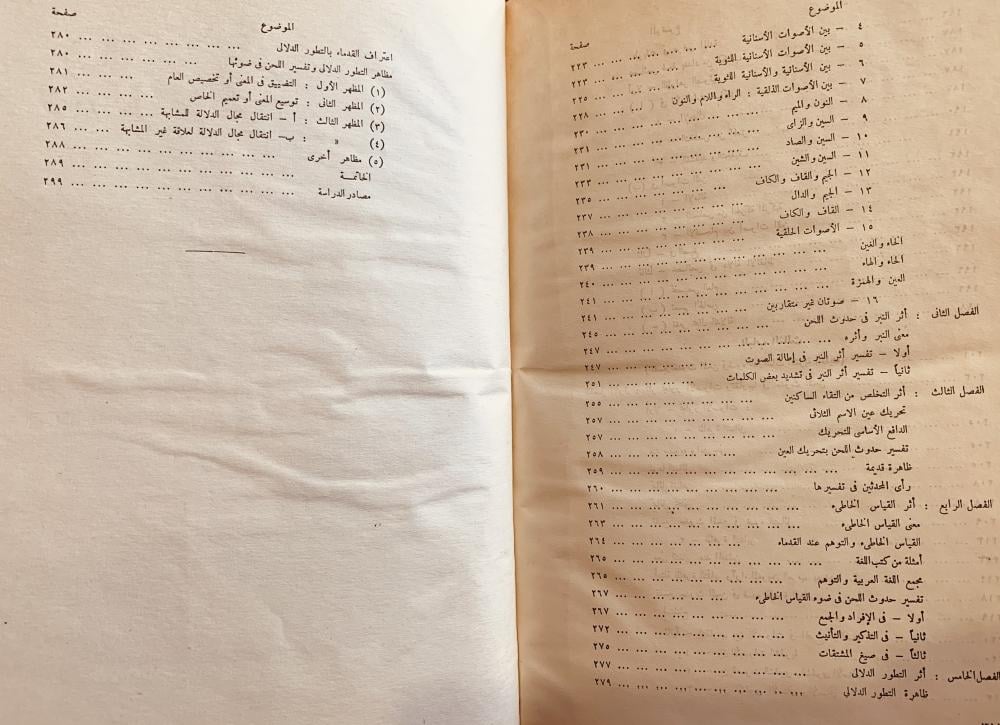 الموضوع صفحة
٤ – بين الأصوات الأسنانية ... ... ... ... ... ... ٢٢٣
٥ – بين الأصوات الأسنانية اللثوية ... ... ... ... ٢٢٣
٦ – بين الأسنانية والأسنانية اللثوية ... ... ... ... ٢٢٥
٧ – بين الأصوات الذلقية : الراء واللام والنون ... ... ٢٢٨
٨ – النون والميم ... ... ... ... ... ... ... ٢٣٠
٩ – السين والزاى ... ... ... ... ... ... ... ٢٣١
١٠ – السين والصاد ... ... ... ... ... ... ... ٢٣١
١١ – السين والشين ... ... ... ... ... ... ... ٢٣٣
١٢ – الجيم والقاف والكاف ... ... ... ... ... ... ٢٣٥
١٣ – الجيم والدال ... ... ... ... ... ... ... ٢٣٧
١٤ – القاف والكاف ... ... ... ... ... ... ... ٢٣٨
١٥ – الأصوات الحلقية ... ... ... ... ... ... ... ٢٣٩
الخاء والغين ... ... ... ... ... ... ... ... ٢٣٩
الحاء والهاء ... ... ... ... ... ... ... ... ٢٤٠
العين والهمزة ... ... ... ... ... ... ... ... ٢٤١
١٦ – صوتان غير متقاربين ... ... ... ... ... ... ٢٤١
الفصل الثانى : أثر النبر فى حدوث اللحن ... ... ... ... ... ... ... ٢٤٥
معنى النبر وأثره ... ... ... ... ... ... ... ... ٢٤٧
أولا – تفسير أثر النبر فى إطالة الصوت ... ... ... ... ٢٤٧
ثانياً – تفسير أثر النبر فى تشديد بعض الكلمات ... ... ... ... ٢٥١
الفصل الثالث : أثر التخلص من التقاء الساكنين ... ... ... ... ... ... ٢٥٥
تحريك عين الاسم الثلاثى ... ... ... ... ... ... ... ٢٥٧
الدافع الأساسى للتحريك ... ... ... ... ... ... ... ٢٥٧
تفسير حدوث اللحن بتحريك العين ... ... ... ... ... ... ٢٥٨
ظاهرة قديمة ... ... ... ... ... ... ... ... ... ٢٥٩
رأى المحدثين فى تفسيرها ... ... ... ... ... ... ... ٢٦٠
الفصل الرابع : أثر القياس الخاطىء ... ... ... ... ... ... ... ... ٢٦١
معنى القياس الخاطىء ... ... ... ... ... ... ... ... ٢٦٣
القياس الخاطىء والتوهم عند القدماء ... ... ... ... ... ٢٦٤
أمثلة من كتب اللغة ... ... ... ... ... ... ... ... ٢٦٥
مجمع اللغة العربية والتوهم ... ... ... ... ... ... ... ٢٦٥
تفسير حدوث اللحن فى ضوء القياس الخاطىء ... ... ... ... ٢٦٧
أولا – فى الإفراد والجمع ... ... ... ... ... ... ... ٢٦٧
ثانياً – فى التذكير والتأنيث ... ... ... ... ... ... ... ٢٧٢
ثالثاً – فى صيغ المشتقات ... ... ... ... ... ... ... ٢٧٥
الفصل الخامس : أثر التطور الدلالى ... ... ... ... ... ... ... ... ٢٧٧
ظاهرة التطور الدلالى ... ... ... ... ... ... ... ٢٧٩
الموضوع صفحة
اعتراف القدماء بالتطور الدلالى ... ... ... ... ... ... ... ... ٢٨٠
مظاهر التطور الدلالى وتفسير اللحن فى ضوئها ... ... ... ... ... ... ٢٨٠
(١) المظهر الأول : التضييق فى المعنى أو تخصيص العام ... ... ... ٢٨١
(٢) المظهر الثانى : توسيع المعنى أو تعميم الخاص ... ... ... ... ٢٨٢
(٣) المظهر الثالث : أ – انتقال مجال الدلالة للمشابهة ... ... ... ٢٨٥
(٤) » : ب – انتقال مجال الدلالة لعلاقة غير المشابهة ... ... ٢٨٦
(٥) مظاهر أخرى ... ... ... ... ... ... ... ... ٢٨٨
الخاتمـــة ... ... ... ... ... ... ... ... ... ٢٨٩
مصادر الدراسة ... ... ... ... ... ... ... ... ... ٢٩٩